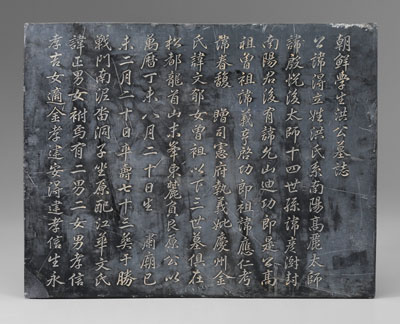 朝鮮學生洪公墓誌
公諱得立姓洪氏系南陽高麗太師
諱殷悅後太師十四世孫諱彦澍封
南陽君後有諱允山迪功郎是公高
祖曾祖諱萬亨啓功郎祖諱應仁考
諱春馥 贈司憲府執義妣慶州金
氏諱文郁女曾祖以下三世墓俱在
松都龍首山末峯東麓負艮原公以
萬曆丁未八月二十日生 肅廟已
未二月二十日卒壽七十三葬于勝
戰門南泥峀洞子坐原配江華文氏
諱正男女樹烏有二男二女男孝信
孝吉女適金孝建安得建孝信生永